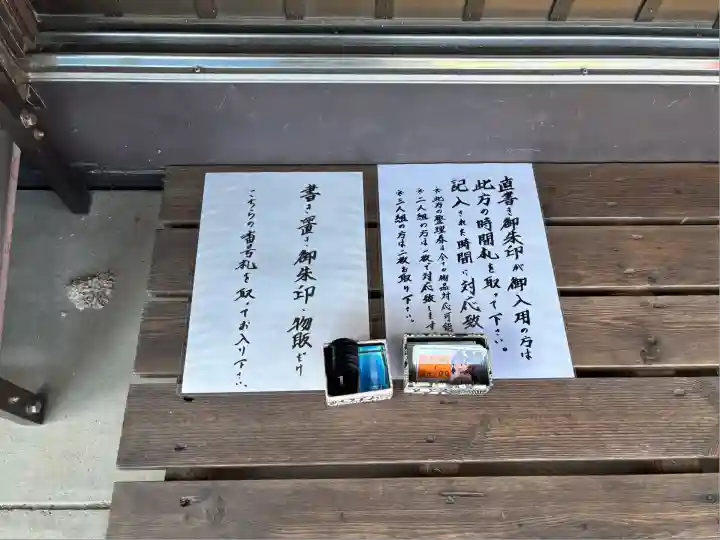 直書き御朱印が御入用の方は
此方の時間札を取って下さい。
記入された時間に対応致
※此方の整理券は全ての物品対応可能
※二人組の方は一枚で対応致します
※三人組の方は二枚お取り下さい。
書き置き御朱印・物販だけ
こちらの番号札を取ってお入り下さい